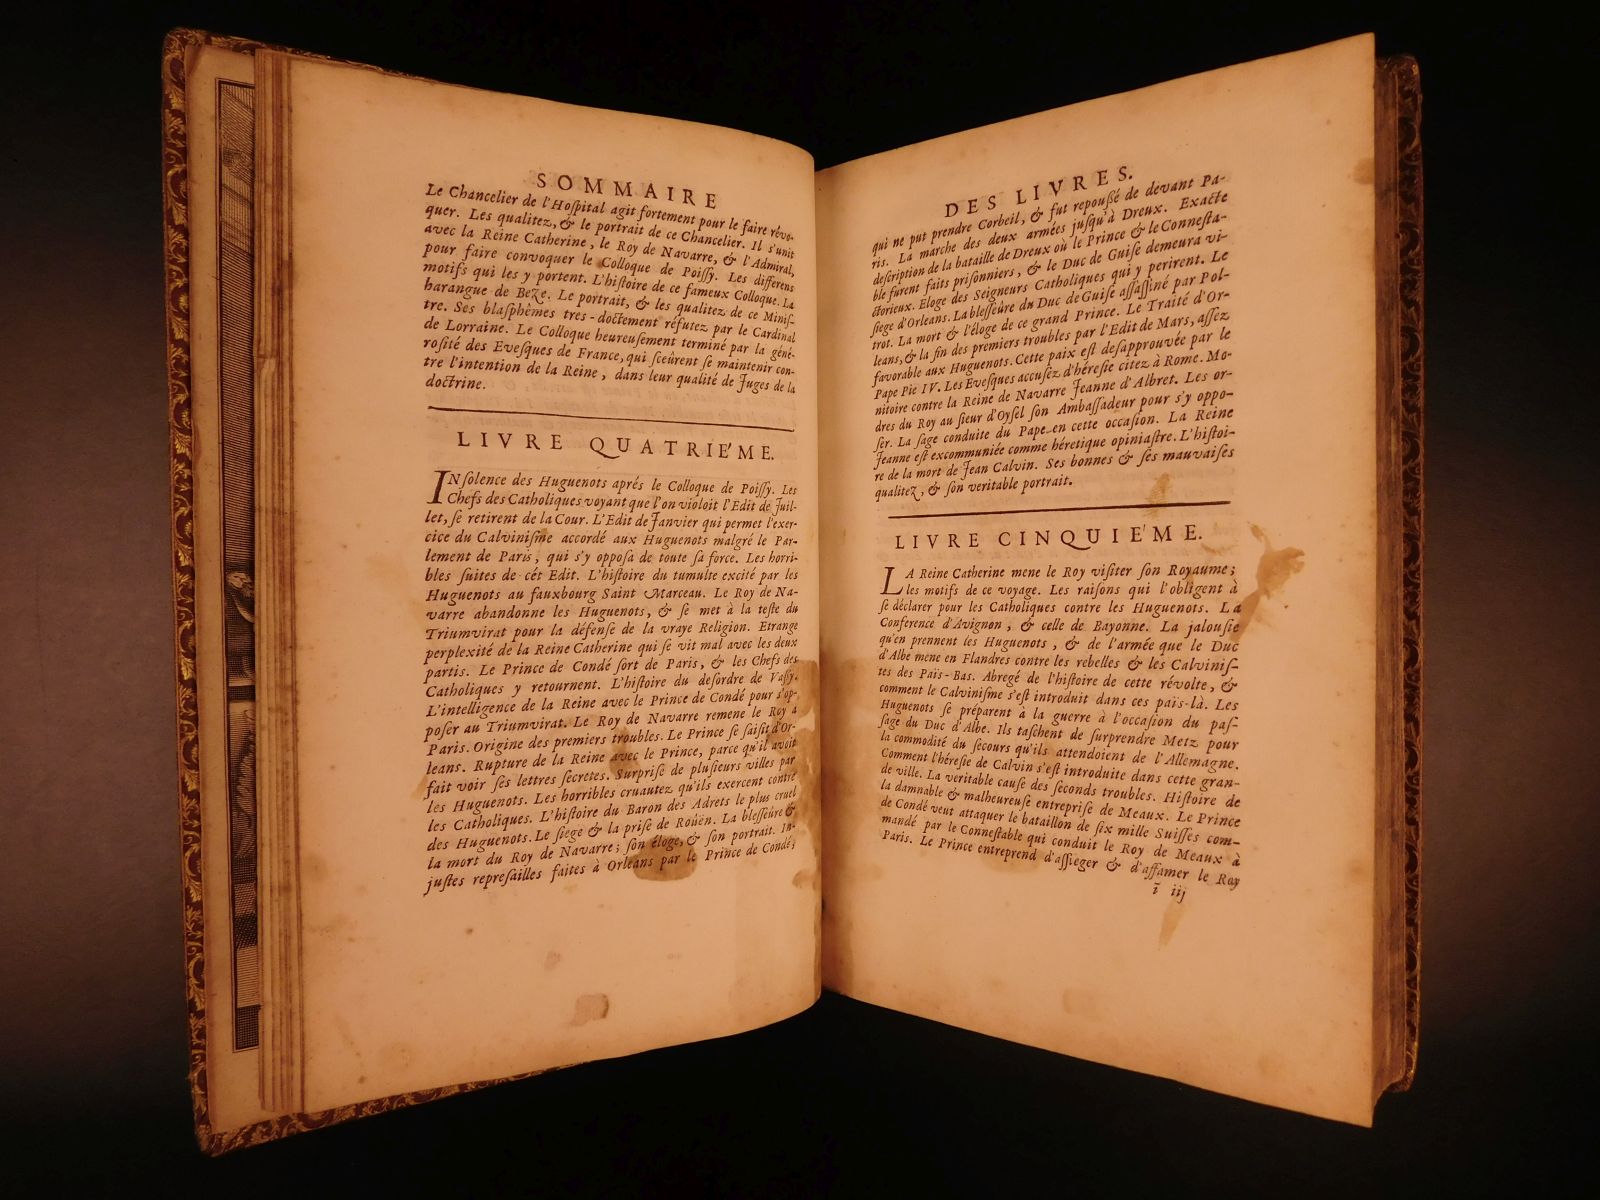 SOMMAIRE
Le Chancelier de l'Hoſpital agit fortement pour le faire révo-
quer. Les qualitez, & le portrait de ce Chancelier. Il s'unit
avec la Reine Catherine, le Roy de Navarre, & l'Admiral,
pour faire convoquer le Colloque de Poiſſy. Les différens
motifs qui les y portent. L'hiſtoire de ce fameux Colloque. La
harangue de Beze. Le portrait, & les qualitez de ce Miniſ-
tre. Ses blaſphêmes tres-doctement réfutez par le Cardinal
de Lorraine. Le Colloque heureuſement terminé par la géné-
roſité des Eveſques de France, qui ſceûrent ſe maintenir con-
tre l'intention de la Reine, dans leur qualité de Juges de la
doctrine.
LIVRE QUATRIE'ME.
INſolence des Huguenots aprés le Colloque de Poiſſy. Les
Chefs des Catholiques voyant que l'on violoit l'Edit de Juil-
let, ſe retirent de la Cour. L'Edit de Janvier qui permet l'exer-
cice du Calviniſme accordé aux Huguenots malgré le Par-
lement de Paris, qui s'y oppoſa de toute ſa force. Les horri-
bles ſuites de cét Edit. L'hiſtoire du tumulte excité par les
Huguenots au fauxbourg Saint Marceau. Le Roy de Na-
varre abandonne les Huguenots, & ſe met à la teſte du
Triumvirat pour la défenſe de la vraye Religion. Etrange
perplexité de la Reine Catherine qui ſe vit mal avec les deux
partis. Le Prince de Condé ſort de Paris, & les Chefs des
Catholiques y retournent. L'hiſtoire du deſordre de Vaſſy.
L'intelligence de la Reine avec le Prince de Condé pour s'op-
poſer au Triumvirat. Le Roy de Navarre remene le Roy a
Paris. Origine des premiers troubles. Le Prince ſe ſaiſit d'Or-
leans. Rupture de la Reine avec le Prince, parce qu'il avoit
fait voir ſes lettres ſecretes. Surpriſe de pluſieurs villes par
les Huguenots. Les horribles cruautez qu'ils exercent contre
les Catholiques. L'hiſtoire du Baron des Adrets le plus cruel
des Huguenots. Le ſiege & la priſe de Roüen. La bleſſeûre &
la mort du Roy de Navarre; ſon éloge, & ſon portrait. In-
juſtes repreſailles faites à Orleans par le Prince de Condé;
DES LIVRES.
qui ne put prendre Corbeil, & fut repouſſé de devant Pa-
ris. La marche des deux armées juſqu'à Dreux. Exacte
deſcription de la bataille de Dreux où le Prince & le Conneſta-
ble furent faits priſonniers, & le Duc de Guiſe demeura vi-
ctorieux. Eloge des Seigneurs Catholiques qui y perirent. Le
ſiege d'Orleans. La bleſſeûre du Duc de Guiſe aſſaſſiné par Pol-
trot. La mort & l'éloge de ce grand Prince. Le Traité d'Or-
leans, & la fin des premiers troubles par l'Edit de Mars, aſſez
favorable aux Huguenots. Cette paix eſt deſapprouvée par le
Pape Pie IV. Les Eveſques accuſez d'héreſie citez à Rome. Mo-
nitoire contre la Reine de Navarre Jeanne d'Albret. Les or-
dres du Roy au ſieur d'Oyſel ſon Ambaſſadeur pour s'y oppo-
ſer. La ſage conduite du Pape en cette occaſion. La Reine
Jeanne eſt excommuniée comme hérétique opiniaſtre. L'hiſtoi-
re de la mort de Jean Calvin. Ses bonnes & ſes mauvaiſes
qualitez, & ſon veritable portrait.
LIVRE CINQUIE'ME.
LA Reine Catherine mene le Roy viſiter ſon Royaume;
les motifs de ce voyage. Les raiſons qui l'obligent à
ſe déclarer pour les Catholiques contre les Huguenots. La
Conference d'Avignon, & celle de Bayonne. La jalouſie
qu'en prennent les Huguenots, & de l'armée que le Duc
d'Albe mene en Flandres contre les rebelles & les Calviniſ-
tes des Païs-Bas. Abregé de l'hiſtoire de cette révolte, &
comment le Calviniſme s'eſt introduit dans ces païs-là. Les
Huguenots ſe préparent à la guerre à l'occaſion du paſ-
ſage du Duc d'Albe. Ils taſchent de ſurprendre Metz pour
la commodité du ſecours qu'ils attendoient de l'Allemagne.
Comment l'héreſie de Calvin s'eſt introduite dans cette gran-
de ville. La veritable cauſe des ſeconds troubles. Hiſtoire de
la damnable & malheureuſe entrepriſe de Meaux. Le Prince
de Condé veut attaquer le bataillon de ſix mille Suiſſes com-
mandé par le Conneſtable qui conduit le Roy de Meaux à
Paris. Le Prince entreprend d'aſſieger & d'affamer le Roy
ī iij